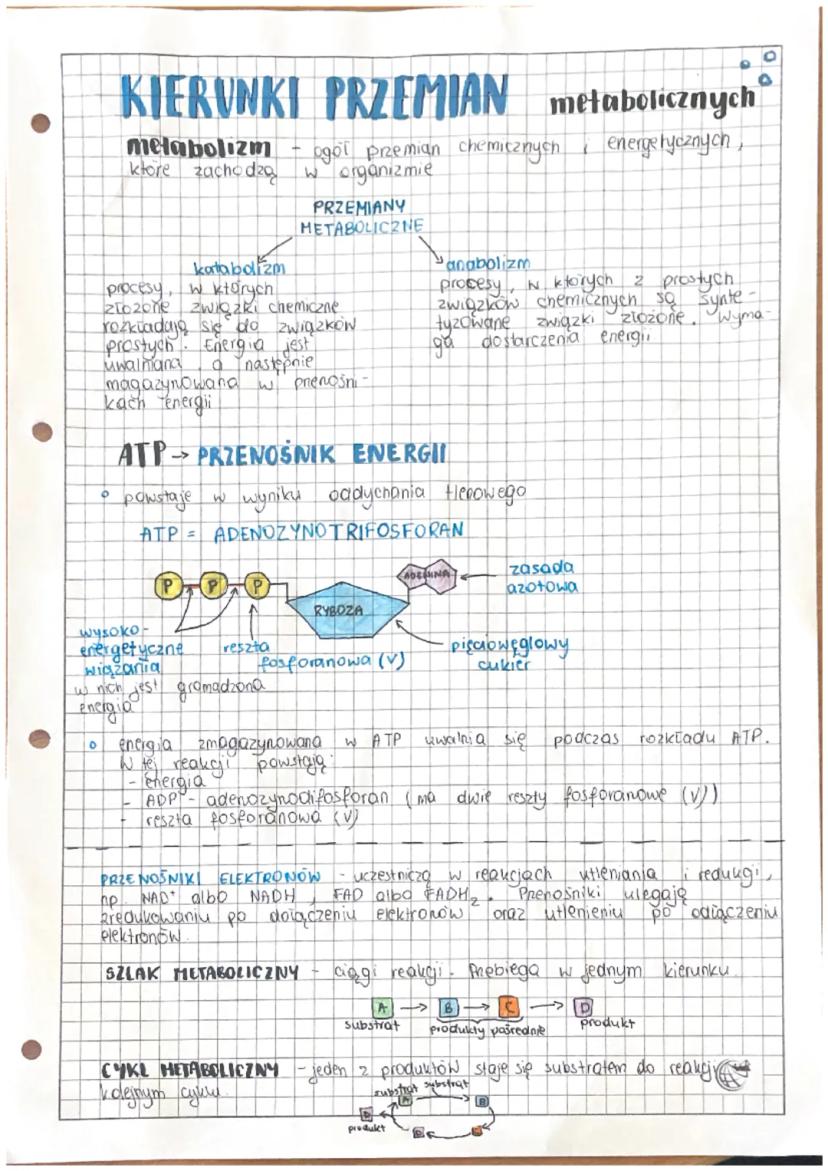 KIERUNKI PRZEMIAN metabolicznych
metabolizm - ogół przemian chemicznych i energetycznych,
które zachodzą w organizmie
PRZEMIANY
METABOLICZNE
katabolizm
procesy, w których
złożone związki chemiczne
rozkładają się do związków
prostych. Energia jest
uwalniana, a następnie
magazynowana w przenośni-
kach energii
anabolizm
procesy, w których z prostych
związków chemicznych są synte-
tyzowane związki złożone. Wyma-
ga dostarczenia energii
ATP → PRZENOŚNIK ENERGII
powstaje w wyniku oddychania tlenowego
ATP = ADENOZYNOTRIFOSFORAN
P P P
RYBOZA
ADENINA
zasada
azotowa
wysoko-
energetyczne
wiązania
w nich jest gromadzona
energia
reszta
fosforanowa (V)
pięciowęglowy
cukier
energia zmagazynowana w ATP uwalnia się podczas rozkładu ATP.
W tej reakcji powstają:
- energia
- ADP - adenozynodifosforan (ma dwie reszty fosforanowe (V))
- reszta fosforanowa (V)
PRZENOŚNIKI ELEKTRONÓW - uczestniczą w reakcjach utleniania i redukcji,
np. NAD⁺ albo NADH, FAD albo FADH₂. Przenośniki ulegają
zredukowaniu po dołączeniu elektronów oraz utlenieniu po odłączeniu
elektronów.
SZLAK METABOLICZNY - ciągi reakcji. Przebiega w jednym kierunku.
A → B → C → D
substrat produkty pośrednie produkt
CYKL METABOLICZNY - jeden z produktów staje się substratem do reakcji
kolejnym cyklu.
substrat substrat
A B
D
produkt